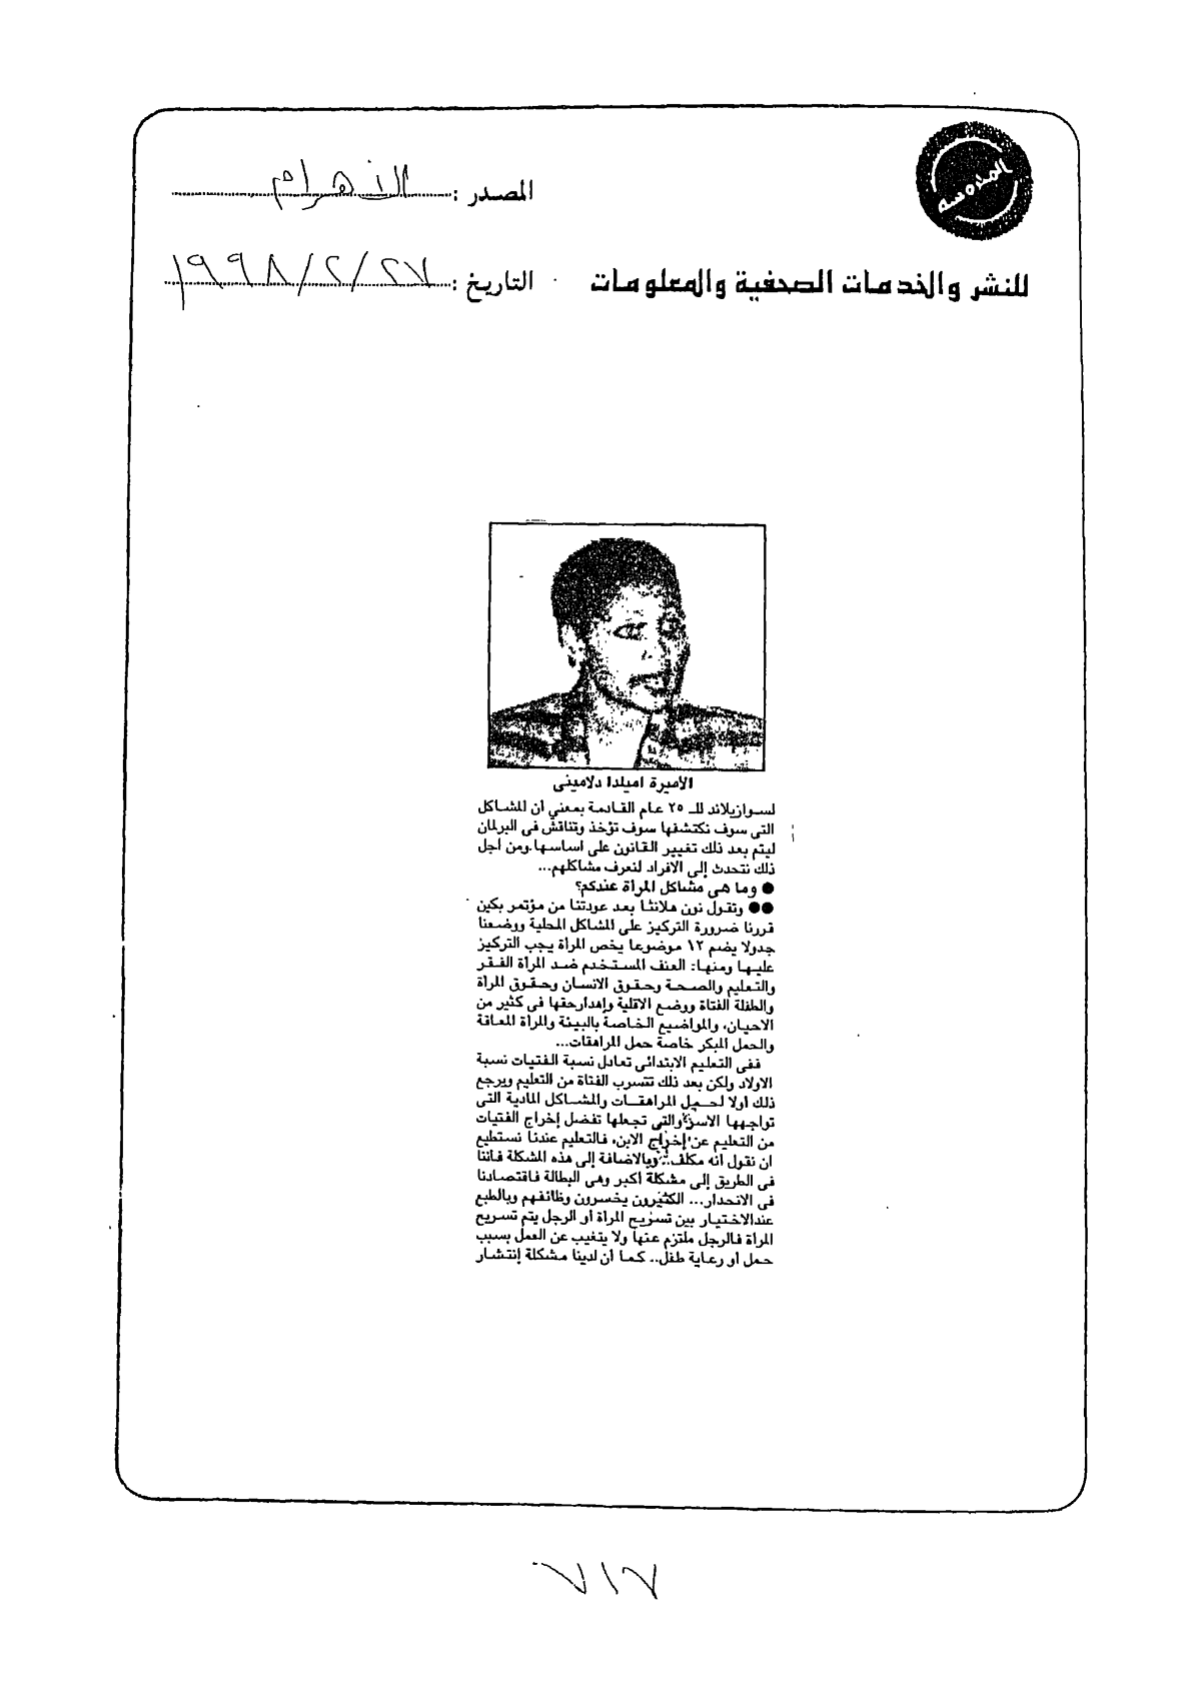 المدوسه
المصدر : الاهرام
للنشر والخدمات الصحفية والمعلومات
التاريخ : ٢٧/٢/١٩٩٨
الأميرة اميلدا دلاميني
لسوازيلاند للـ ٢٥ عام القادمة بمعني أن المشاكل
التى سوف نكتشفها سوف تؤخذ وتناقش فى البرلمان
ليتم بعد ذلك تغيير القانون على اساسها.ومن أجل
ذلك نتحدث إلى الافراد لنعرف مشاكلهم...
● وما هى مشاكل المرأة عندكم؟
●● وتقول نون هلانثا بعد عودتنا من مؤتمر بكين
قررنا ضرورة التركيز على المشاكل المحلية ووضعنا
جدولا يضم ١٢ موضوعا يخص المرأة يجب التركيز
عليها ومنها: العنف المستخدم ضد المرأة الفقر
والتعليم والصحة وحقوق الانسان وحقوق المرأة
والطفلة الفتاة ووضع الاقلية وإهدارحقها فى كثير من
الاحيان، والمواضيع الخاصة بالبيئة والمرأة المعاقة
والحمل المبكر خاصة حمل المراهقات...
ففى التعليم الابتدائى تعادل نسبة الفتيات نسبة
الاولاد ولكن بعد ذلك تتسرب الفتاة من التعليم ويرجع
ذلك أولا لحمل المراهقات والمشاكل المادية التى
تواجهها الاسر والتى تجعلها تفضل إخراج الفتيات
من التعليم عن إخراج الابن، فالتعليم عندنا نستطيع
ان نقول أنه مكلف.. وبالاضافة إلى هذه المشكلة فاننا
فى الطريق إلى مشكلة أكبر وهى البطالة فاقتصادنا
فى الانحدار... الكثيرون يخسرون وظائفهم وبالطبع
عندالاختيار بين تسريح المرأة أو الرجل يتم تسريح
المرأة فالرجل ملتزم عنها ولا يتغيب عن العمل بسبب
حمل أو رعاية طفل.. كما أن لدينا مشكلة إنتشار
٧١٧